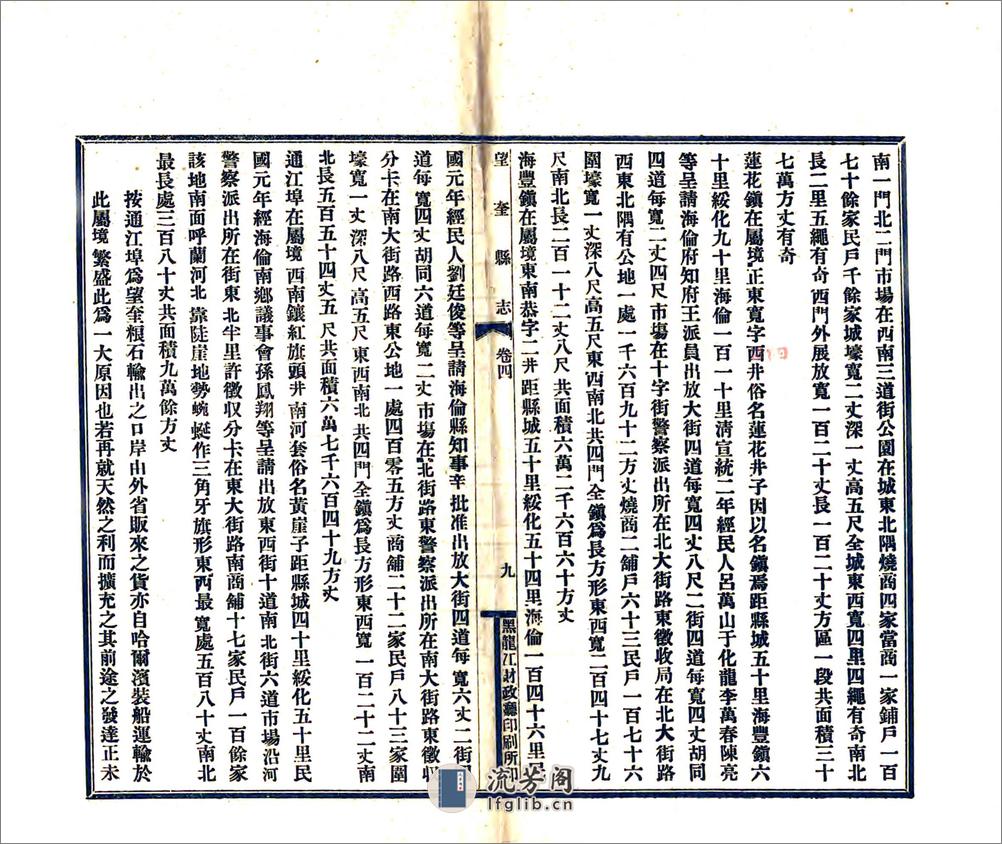 南一門北二門市場在西南三道街公園在城東北隅燒商四家當商一家鋪戶一百
七十餘家民戶千餘家城壕寬二丈深一丈高五尺全城東西寬四里四繩有奇南北
長二里五繩有奇西門外展放寬一百二十丈長一百二十丈方區一段共面積三十
七萬方丈有奇
蓮花鎮在屬境正東寬字四井俗名蓮花井子因以名鎮焉距縣城五十里海豐鎮六
十里綏化九十里海倫一百一十里清宣統二年經民人呂萬山于化龍李萬春陳亮
等呈請海倫府知府王派員出放大街四道每寬四丈八尺二街四道每寬四丈胡同
四道每寬二丈四尺市場在十字街警察派出所在北大街路東徵收局在北大街路
西東北隅有公地一處一千六百九十二方丈燒商二舖戶六十三民戶一百七十六
園壕寬一丈深八尺高五尺東西南北共四門全鎮爲長方形東西寬二百四十七丈九
尺南北長二百一十二丈八尺共面積六萬二千六百六十方丈
海豐鎮在屬境東南恭字二井距縣城五十里綏化五十四里海倫一百四十六里民
望奎縣志
卷四
九
黑龍江財政廳印刷所印
國元年經民人劉廷俊等呈請海倫縣知事辛批准出放大街四道每寬六丈二街四
道每寬四丈胡同六道每寬二丈市場在北街路東警察派出所在南大街路東徵収
分卡在南大街路西路東公地一處四百零五方丈商舖二十二家民戶八十三家圍
壕寬一丈深八尺高五尺東西南北共四門全鎮爲長方形東西寬一百二十二丈南
北長五百五十四丈五尺共面積六萬七千六百四十九方丈
通江埠在屬境西南鑲紅旗頭井南河套俗名黃崖子距縣城四十里綏化五十里民
國元年經海倫南鄉議事會孫鳳翔等呈請出放東西街十道南北街六道市場沿河
警察派出所在街東北半里許徵収分卡在東大街路南商舖十七家民戶一百餘家
該地南面呼蘭河北靠陡崖地勢蜿蜒作三角牙旗形東西最寬處五百八十丈南北
最長處三百八十丈共面積九萬餘方丈
按通江埠爲望奎粮石輸出之口岸出外省販來之貨亦自哈爾濱裝船運輸於
此屬境繁盛此爲一大原因也若再就天然之利而擴充之其前途之發達正未
流芳阁
lfglib.cn